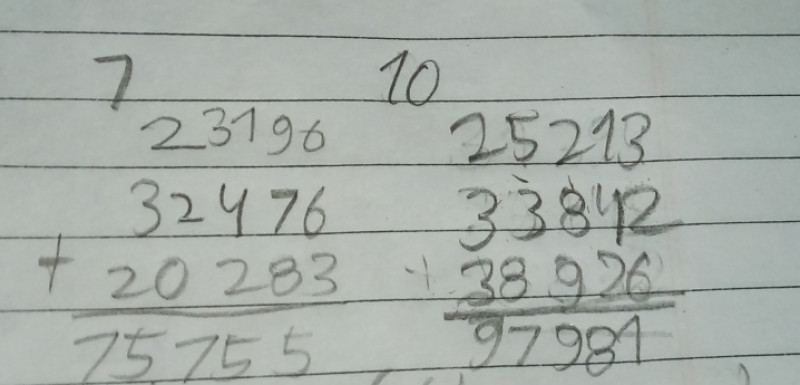 7
23196
32476
+ 20283
75755
10
25213
33842
+ 38926
97981